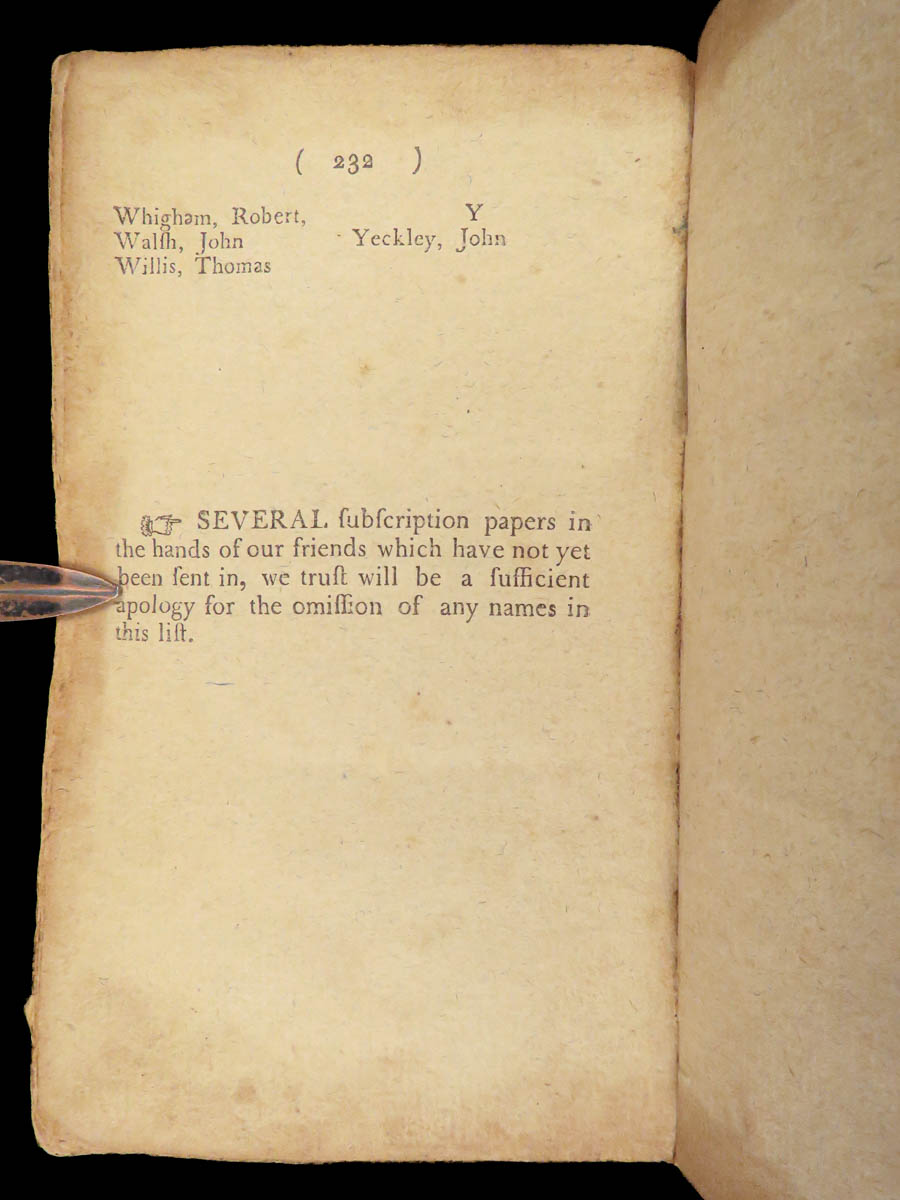 ( 232 )
Whigham, Robert,
Walſh, John
Willis, Thomas
Y
Yeckley, John
☞ SEVERAL ſubſcription papers in
the hands of our friends which have not yet
been ſent in, we truſt will be a ſufficient
apology for the omiſſion of any names in
this liſt.